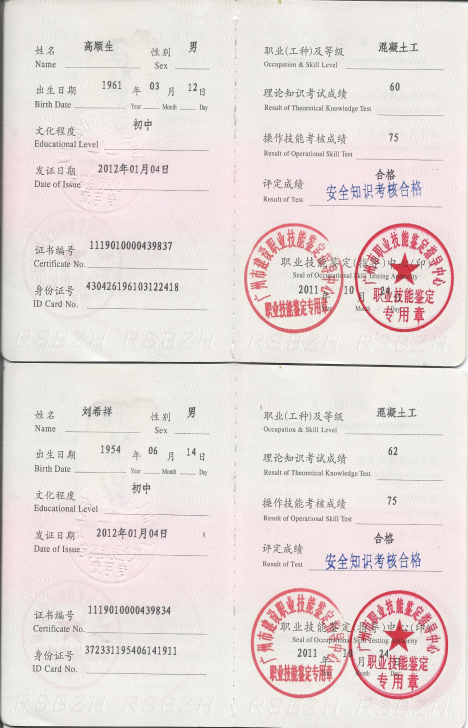 姓名 高顺生 性别 男
Name Sex
出生日期 1961 年 03 月 12 日
Birth Date Year Month Day
文化程度 初中
Educational Level
发证日期 2012年01月04日
Date of Issue
证书编号 1119010000439837
Certificate No.
身份证号 430426196103122418
ID Card No.
职业(工种)及等级 混凝土工
Occupation & Skill Level
理论知识考试成绩 60
Result of Theoretical Knowledge Test
操作技能考核成绩 75
Result of Operational Skill Test
评定成绩 合格
Result of Test 安全知识考核合格
职业技能鉴定(指导)中心(印)
Seal of Occupational Skill Testing Authority
2011 年 10 月 24 日
Year Month Day
广州市建设职业技能鉴定指导中心
职业技能鉴定专用章
广州市职业技能鉴定指导中心
职业技能鉴定
专用章
RSBZH RSBZH
姓名 刘希祥 性别 男
Name Sex
出生日期 1954 年 06 月 14 日
Birth Date Year Month Day
文化程度 初中
Educational Level
发证日期 2012年01月04日
Date of Issue
证书编号 1119010000439834
Certificate No.
身份证号 372331195406141911
ID Card No.
职业(工种)及等级 混凝土工
Occupation & Skill Level
理论知识考试成绩 62
Result of Theoretical Knowledge Test
操作技能考核成绩 75
Result of Operational Skill Test
评定成绩 合格
Result of Test 安全知识考核合格
职业技能鉴定(指导)中心(印)
Seal of Occupational Skill Testing Authority
2011 年 10 月 24 日
Year Month Day
广州市建设职业技能鉴定指导中心
职业技能鉴定专用章
广州市职业技能鉴定指导中心
职业技能鉴定
专用章
RSBZH RSBZH